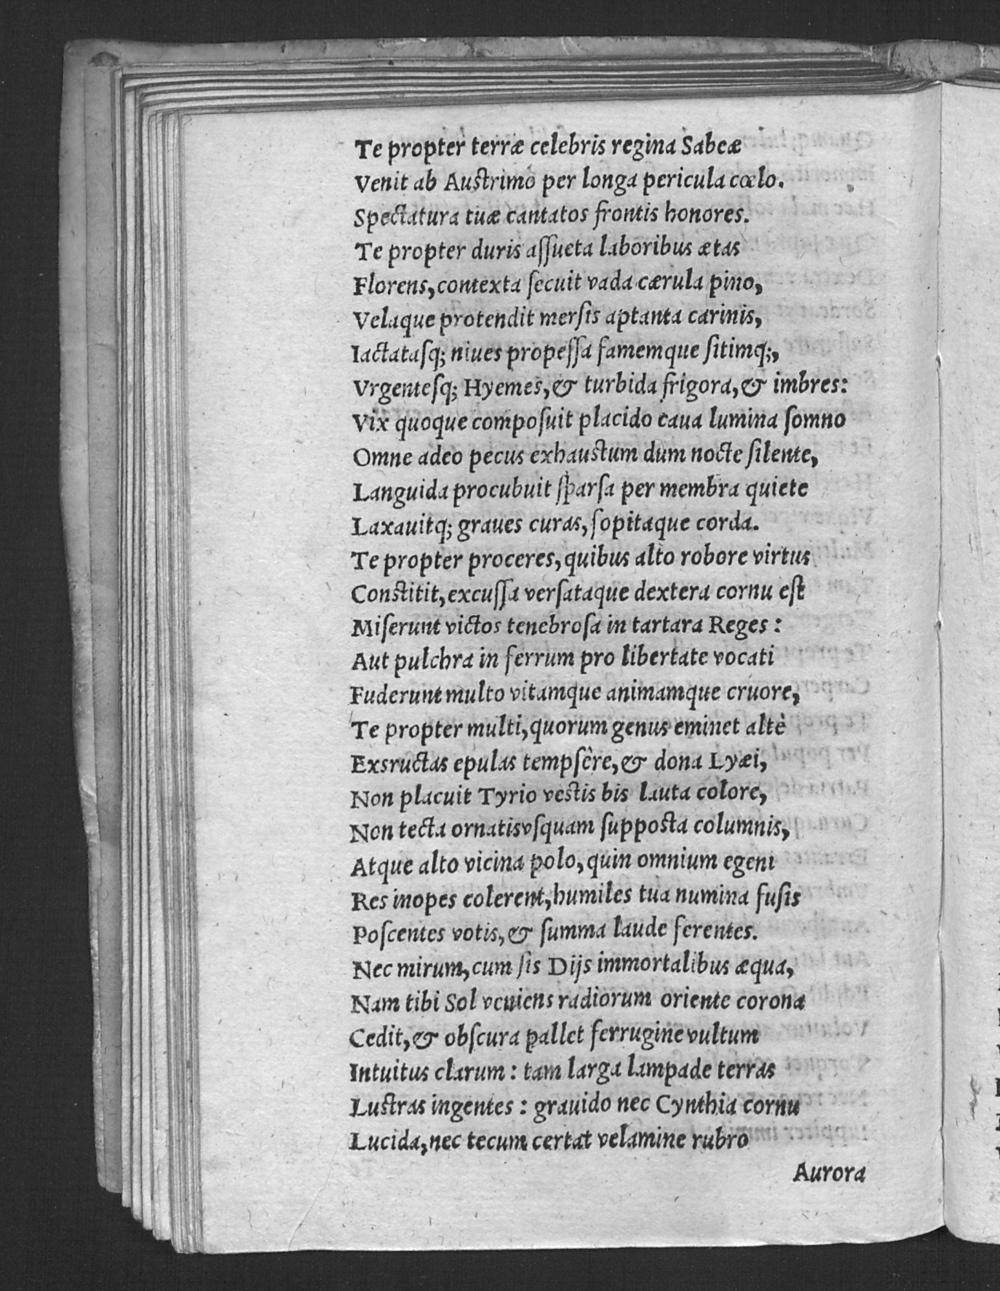 Te propter terræ celebris regina Sabeæ
Venit ab Austrimo per longa pericula cœlo.
Spectatura tuæ cantatos frontis honores.
Te propter duris aſſueta laboribus ætas
Florens, contexta ſecuit vada cærula pino,
Velaque protendit mersis aptanta carinis,
Iactataſq; niues propeſſa famemque ſitimq;,
Vrgenteſq; Hyemes, & turbida frigora, & imbres:
Vix quoque compoſuit placido caua lumina ſomno
Omne adeo pecus exhaustum dum nocte ſilente,
Languida procubuit ſparſa per membra quiete
Laxauitq; graues curas, ſopitaque corda.
Te propter proceres, quibus alto robore virtus
Constitit, excuſſa verſataque dextera cornu est
Miſerunt victos tenebroſa in tartara Reges:
Aut pulchra in ferrum pro libertate vocati
Fuderunt multo vitamque animamque cruore,
Te propter multi, quorum genus eminet altè
Exsructas epulas tempſère, & dona Lyæi,
Non placuit Tyrio vestis bis lauta colore,
Non tecta ornatis vſquam ſuppoſta columnis,
Atque alto vicina polo, quin omnium egeni
Res inopes colerent, humiles tua numina fuſis
Poſcentes votis, & ſumma laude ferentes.
Nec mirum, cum ſis Dijs immortalibus æqua,
Nam tibi Sol veniens radiorum oriente corona
Cedit, & obſcura pallet ferrugine vultum
Intuitus clarum: tam larga lampade terras
Lustras ingentes: grauido nec Cynthia cornu
Lucida, nec tecum certat velamine rubro
Aurora